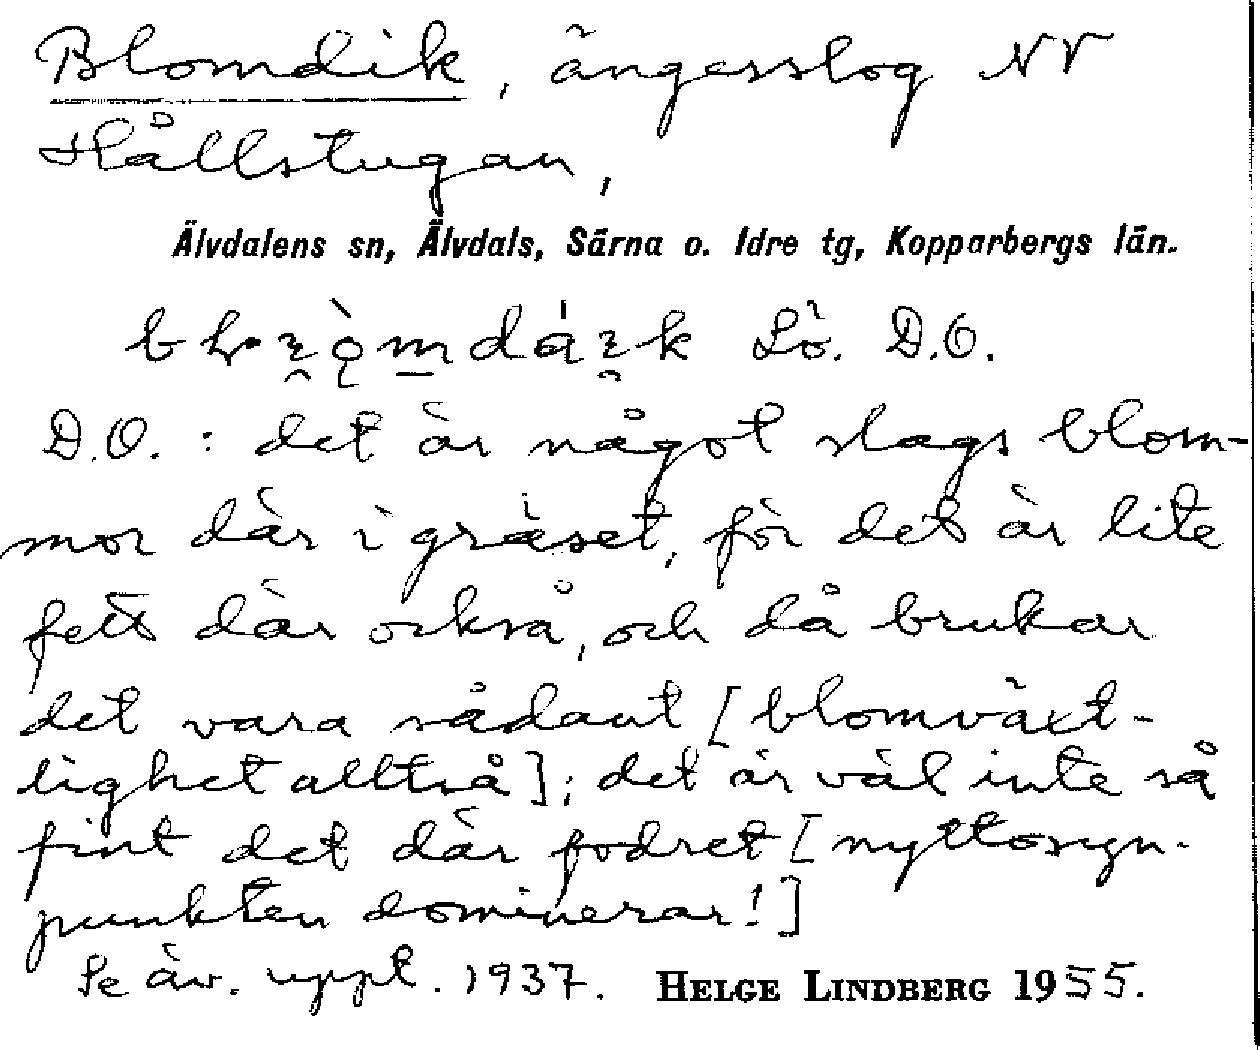 Blomdik, ängesslog NV
Hållstugan,
Älvdalens sn, Älvdals, Särna o. Idre tg, Kopparbergs län.
Lö. D.O.
D.O. : det är något slags blom-
mor där i gräset, för det är lite
fett där också, och då brukar
det vara sådant [blomväxt-
lighet alltså]; det är väl inte så
fint det där fodret [nyttosyn-
punkten dominerar!]
Se äv. uppt. 1937. HELGE LINDBERG 1955.